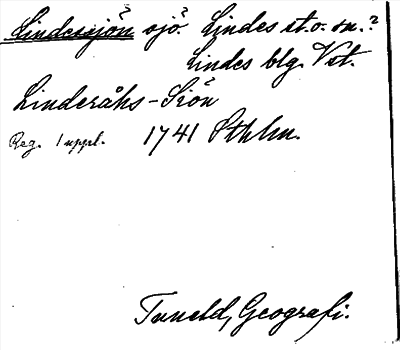 Lindessjön sjö? Lindes st. o. sn.?
Lindes blg. Vstm.
Linderåhs-Siön
Reg. 1 uppl. 1741 Sthlm.
Tuneld, Geografi.